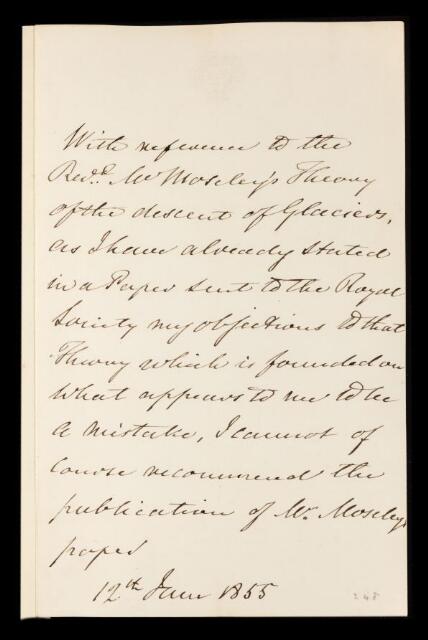 With reference to the
Revd. Mr Moseley's Theory
of the descent of Glaciers,
as I have already stated
in a Paper sent to the Royal
Society my objections to that
Theory which is founded on
what appears to me to be
a mistake, I cannot of
course recommend the
publication of Mr. Moseley's
paper
12th June 1855
248